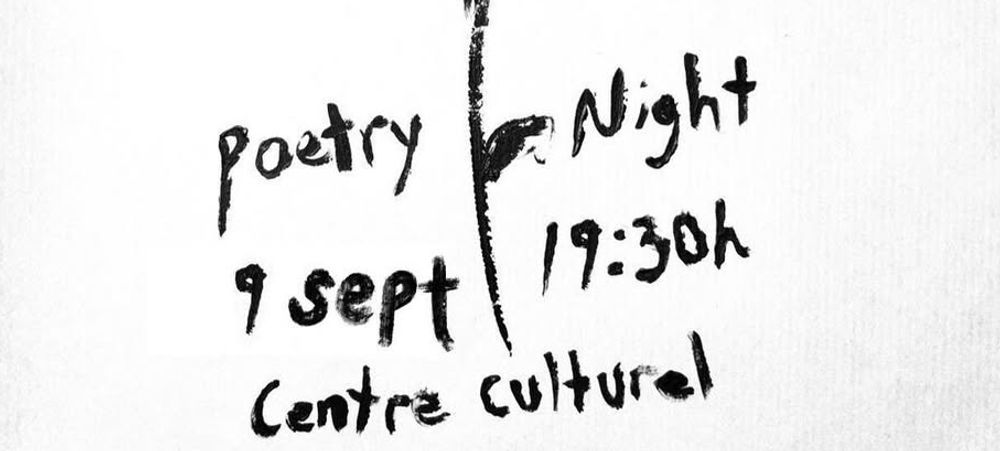 poetry Night
9 sept 19:30h
Centre culturel